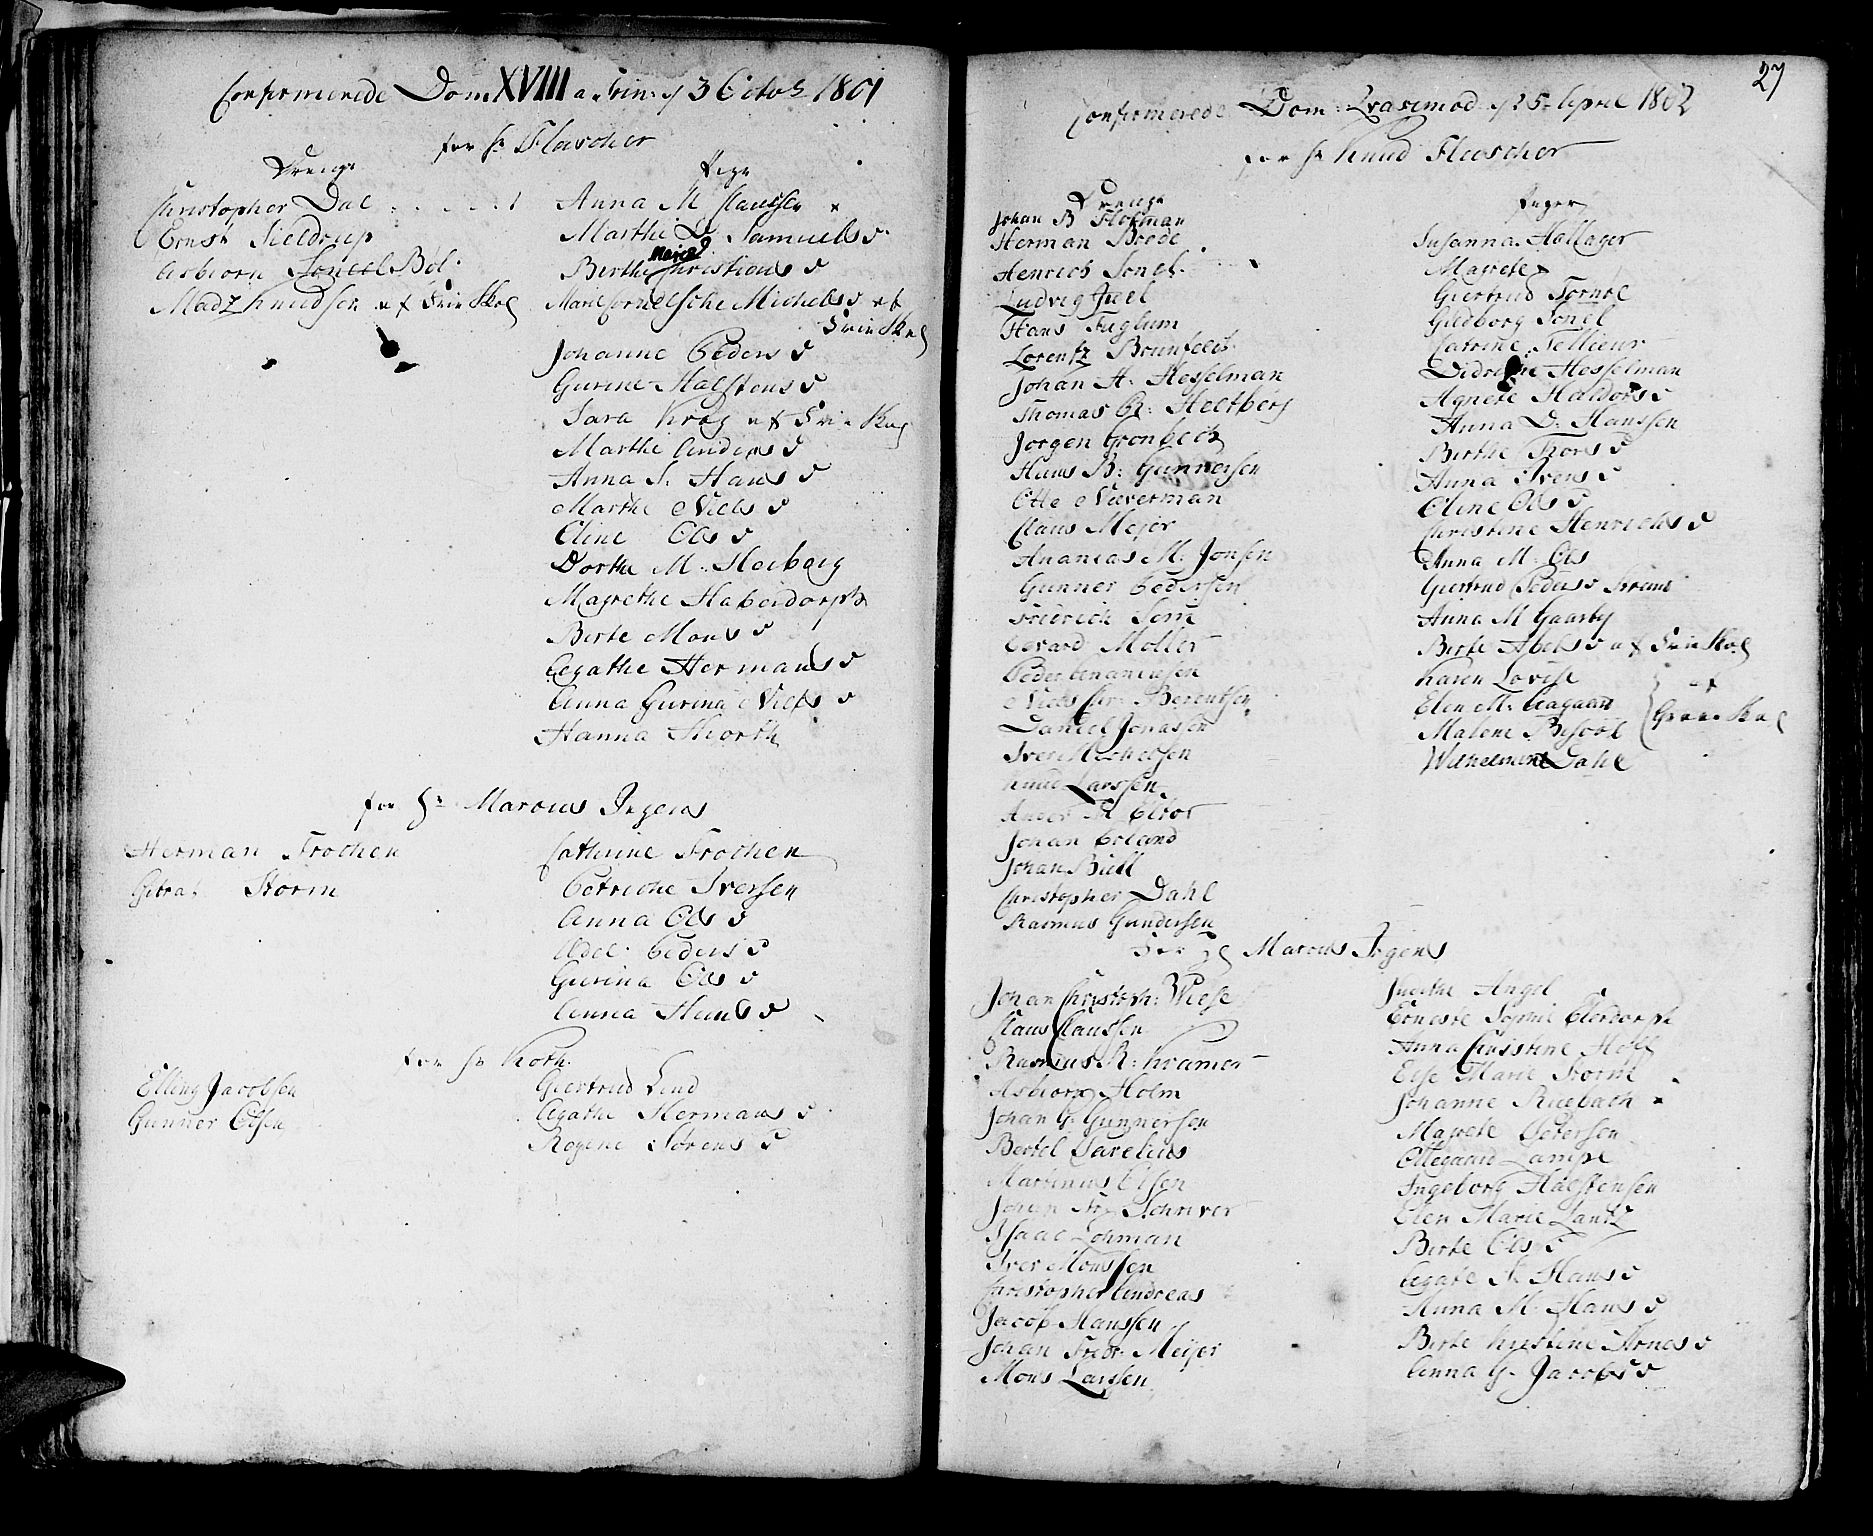 Confirmerede Dom XVIII a Trin: d 3 Octob 1801
for Hr Fleischer
Drenge
Christopher Dal
Ernst Sieldrup
Asbiorn Sonel Bol
Madz Knudsen af Frie Skol
Pige
Anna M Claussen
Marthe D Samuels D
Birthe Marie Christians D
Marie Cornelsche Michels D af Frie Skol
Johanne Peders D
Gurine Halstens D
Sara Krog af Frie Skol
Marthe Anders D
Anna S. Hans D
Marthe Niels D
Eline Ols D
Dorthe M. Heiberg
Magrethe Haberdorph
Berte Mons D
Agathe Hermans D
Anna Gurina Niels D
Hanna Skiorth
for Hr Marcus Irgens
Herman Frochen
Gebrat Storm
Cathrine Frochen
Petriche Iversen
Anna Ols D
Adel Peders D
Gurina Ols D
Anna Hans D
for Hr Koth
Elling Jacobsen
Gunner Olsen
Giertrud Lind
Agathe Hermans D
Regine Sörens D
27
Confirmerede Dom: Qvasimod d 25 April 1802
for Hr Knud Fleischer
Drenge
Johan B Flohman
Herman Brede
Henrich Sonel
Ludvig Juel
Hans Fuglum
Lorentz Brunfeldt
Johan H. Hesselman
Thomas Gl: Heltberg
Jorgen Gronbech
Hans B: Gunnersen
Otte Neverman
Claus Mejer
Ananias M. Jonsen
Gunner Pedersen
Fridrich Sem
Evard Moller
Peder Benamensen
Niels Chr: Berentsen
Daniel Jonassen
Iver Michelsen
Knud Larssen
Johan Erland
Johan Buill
Christopher Dahl
Rasmus Gundersen
Piger
Susanna Hallager
Magrete
Giertrud Tornöe
Giedborg Sonel
Catrine Tellieur
Didriche Hesselman
Agnete Haldors D
Anna D. Hanssen
Birthe Thors D
Anna Ivers D
Oline Ols D
Christine Henrichs D
Anna M. Ols
Giertrud Peders D
Anna M Gaasby
Berte Abels D af Frie Skol
Karen Lovise
Elen M. Aagaard
Malene Bescol
Wilhelmine Dahl
af
Skol
For Hr Marcus Irgens
Johan Christoph: Wiese
Claus Claussen
Rasmus R: Kramer
Asbiorn Holm
Johan G. Gunnersen
Bertel Sarelius
Martinus Olsen
Johan Fr. Schriver
Isaac Lohman
Iver Monssen
Christopher Andreas
Jacob Hanssen
Johan Fredr: Meijer
Mons Larssen
Judithe Angel
Erneste Sophie Elerdorph
Anna Christine Hoff
Else Marie Storm
Johanne Ruebach
Magrete Petersen
Ollegaard Lampe
Ingeborg Halstensen
Elen Marie Lantz
Berte Ols D
Agate S. Hans D
Anna M. Hans D
Berte Kirstine Arnes D
Anna G. Jacobs D